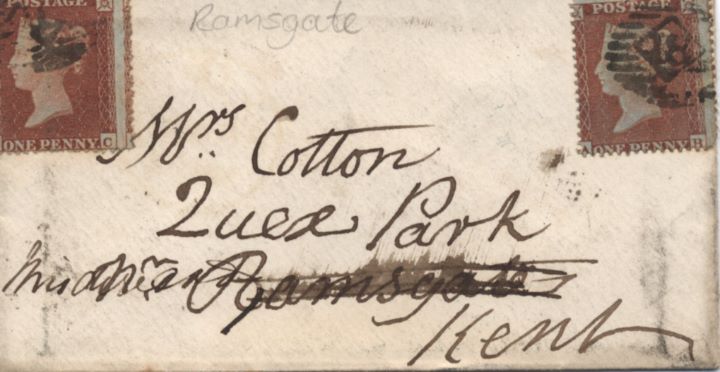 Ramsgate
POSTAGE
ONE PENNY C
POSTAGE
A ONE PENNY B
Mrs Cotton
Quex Park
Ramsgate
Kent